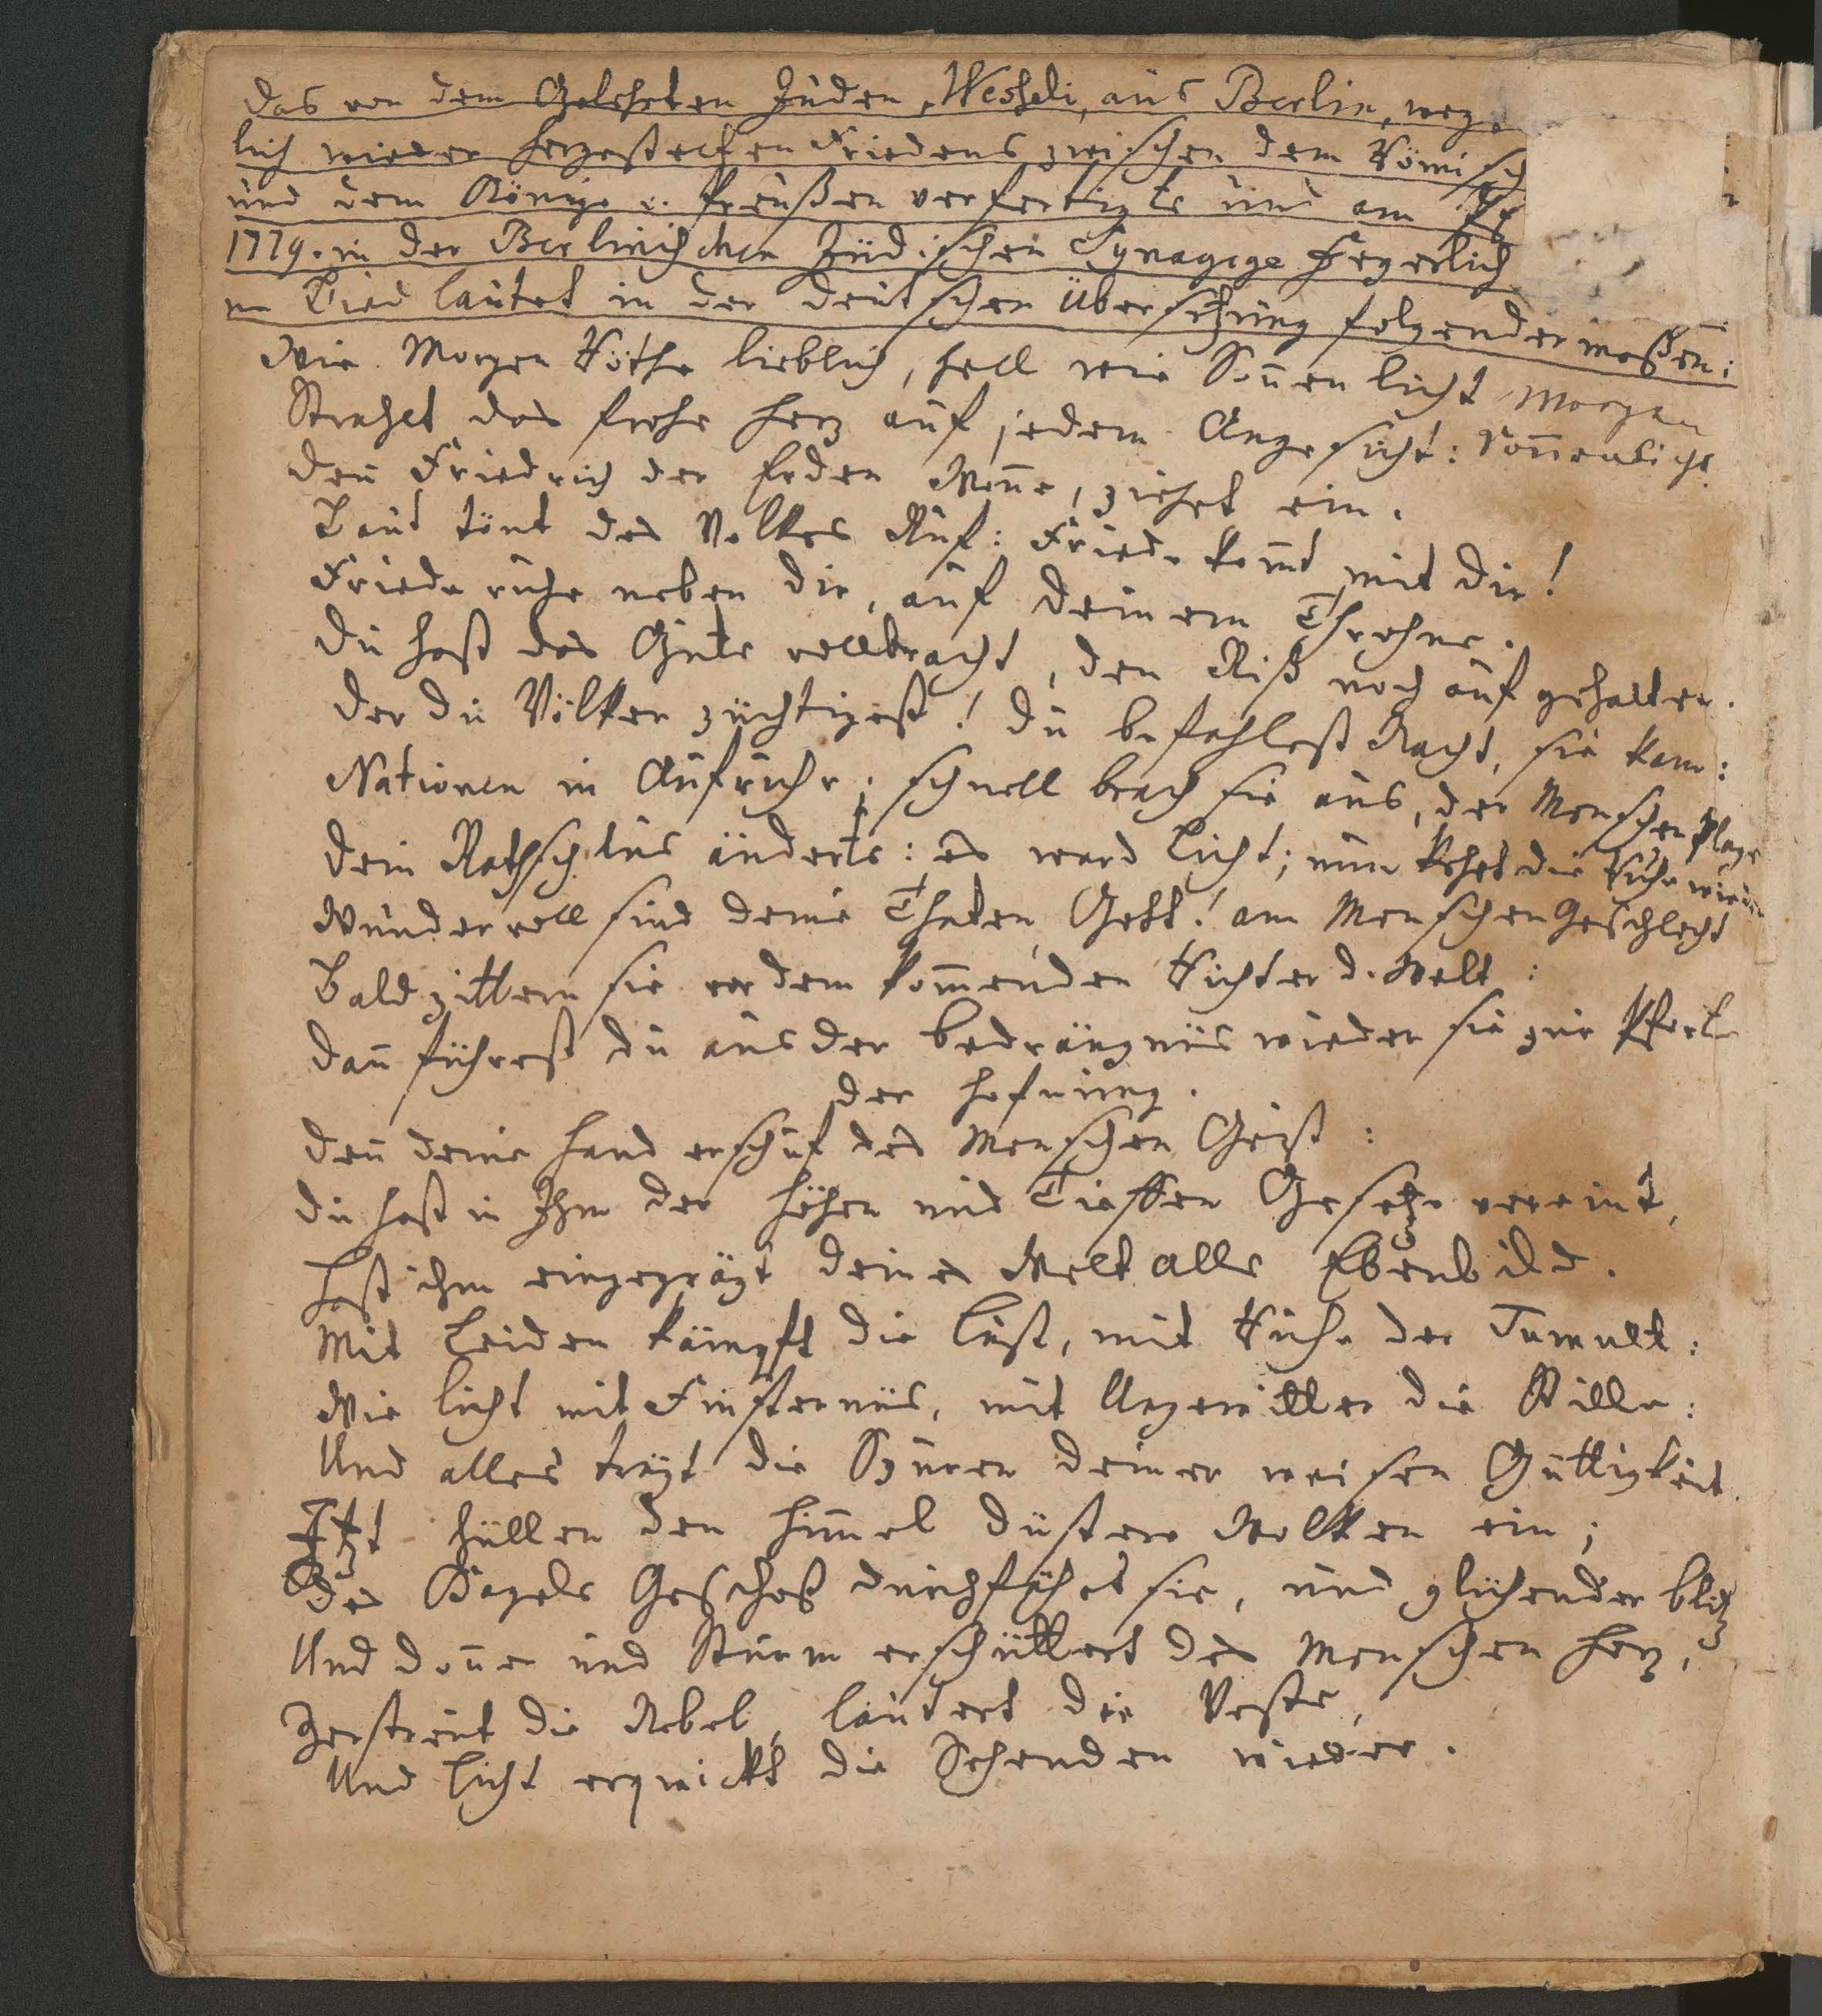 Das von dem Gelehrten Juden, Wesseli, aus Berlin, weg
lich wieder hergestelten Friedens zwischen dem Römisch
und dem Könige v. Preußen verfertigte und am
1779. in der Berlinischen Jüdischen Synagoge feyerlich
ne Lied lautet in der deutschen Übersetzung folgender maßen:
Wie Morgen Röthe lieblich, hell wie Sonnen licht Morgen
Strahlet das frohe Herz auf jedem Angesicht: Sonnenlicht
Denn Friedrich der Erden Wonne, ziehet ein.
Laut tönt des Volkes Ruf: Friede komt mit dir!
Friede ruhe neben dir, auf deinem Throhne.
Du hast das Gute vollbracht, den Riß noch auf gehalten.
Der du Völker züchtigest! du befahlest Nacht, sie kam:
Nationen in Aufruhr; schnell brach sie aus, der Menschen Plage
Dein Rathschlus änderte: es ward Licht; nun kehrt die Ruhe wieder
Wundervoll sind deine Thaten Gott! am Menschen Geschlecht
Bald zittern sie vor dem kommenden Richter d. Welt:
Dann führest du aus der Bedrängnüs wieder sie zur Pforte
der Hofnung.
Denn deine Hand erschuf des Menschen Geist:
Du hast in Ihm der Höhen und Tieffen Gesetze vereint,
Hast ihm eingeprägt deines Welt alls Ebenbild.
Mit Leiden kämpft die Lust, mit Ruhe der Tumult:
Wie Licht mit Finsternüs, mit Ungewitter die Stille:
Und alles trägt die Spuren deiner weisen Güttigkeit.
Itzt hüllen den Himmel düstere Wolken ein;
Des Hagels Geschoß durchfährt sie, und glühender Blitz
Und Donner und Sturm erschüttert des Menschen Herz,
Zerstreut die Nebel, läutert die Veste,
Und Licht erquickt die Sehenden wieder.